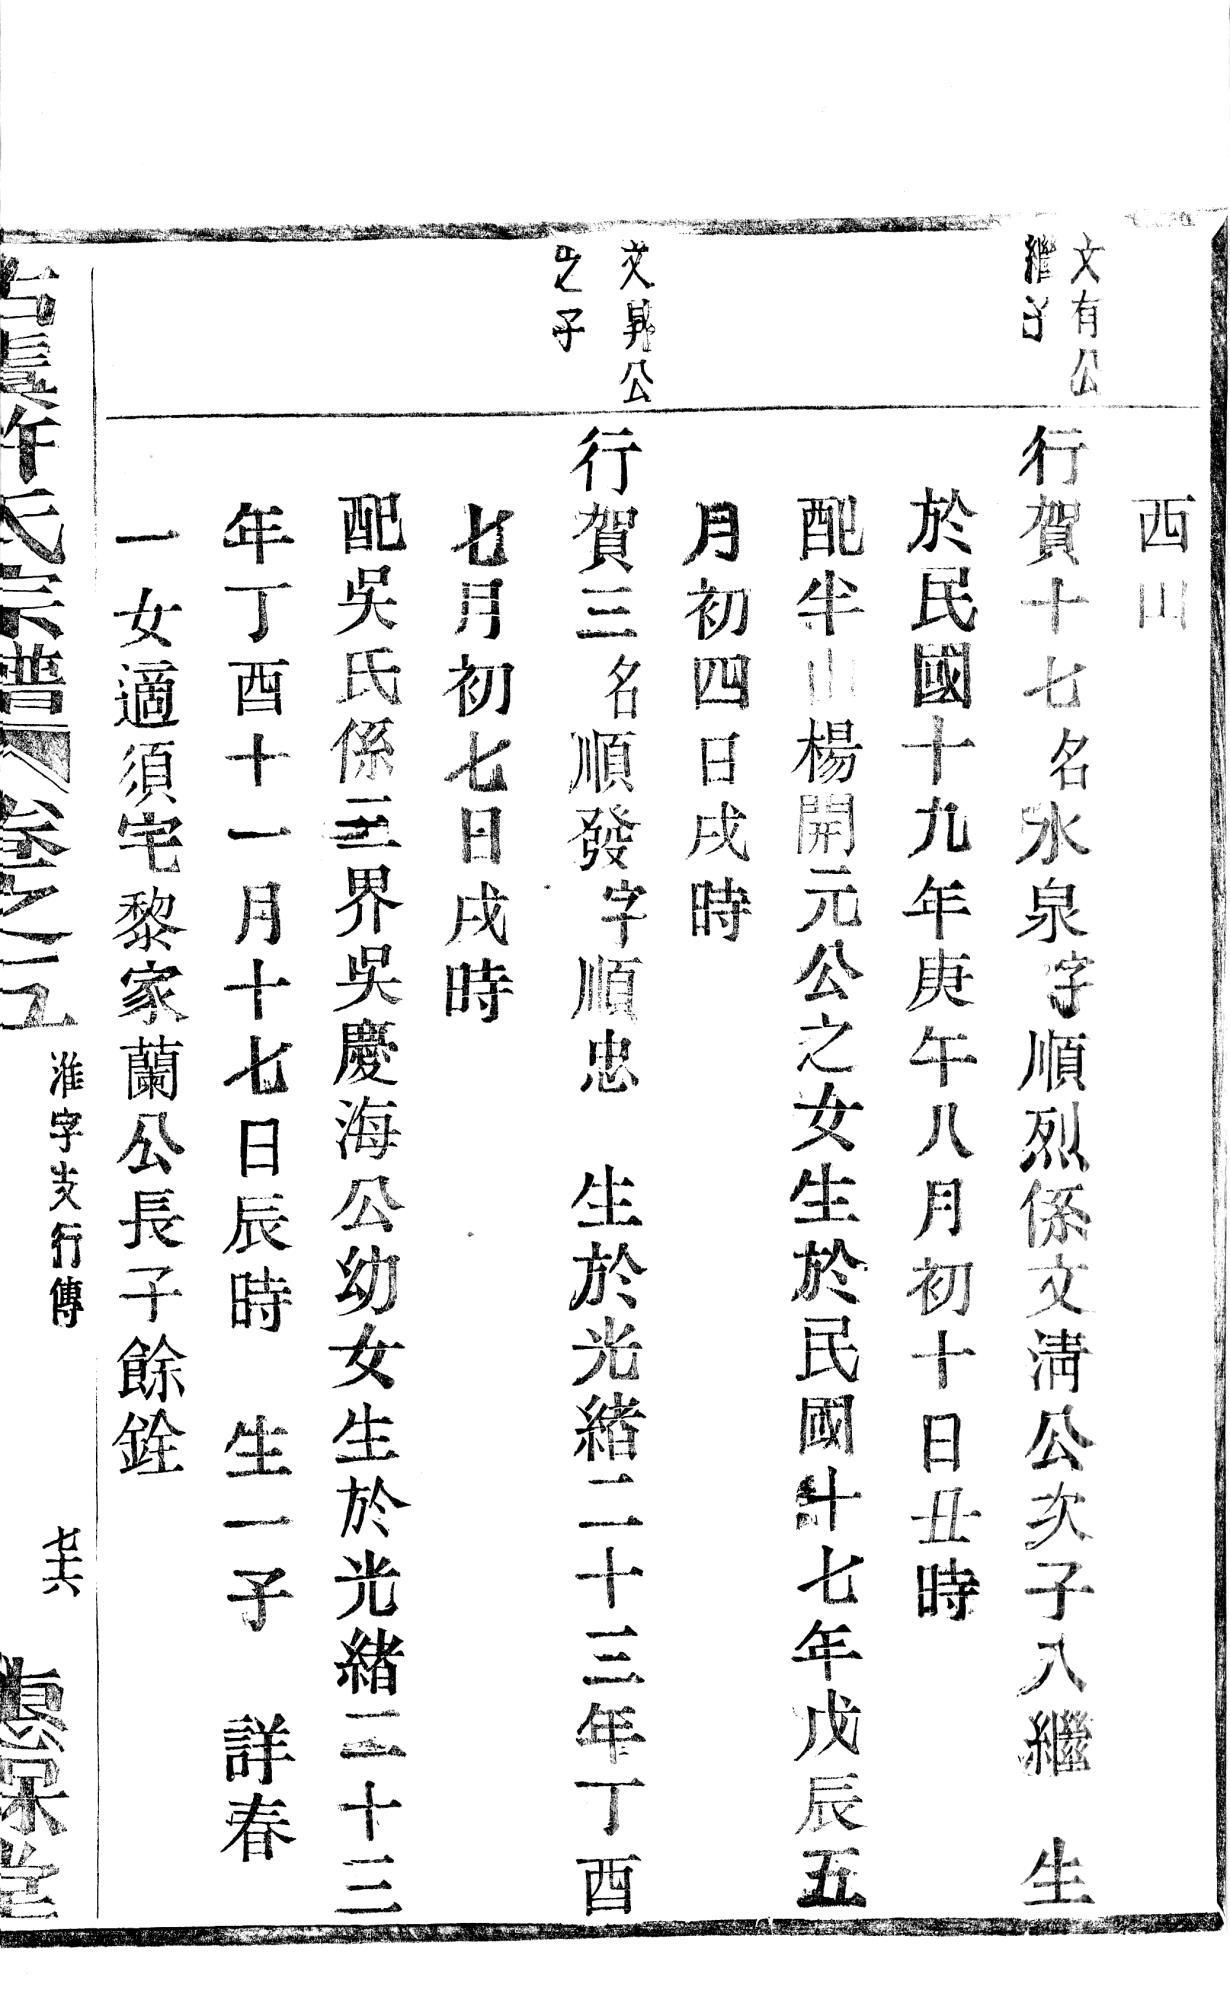 西山
文有公
繼子
行賀十七名水泉字順烈係文淸公次子入繼　生
於民國十九年庚午八月初十日丑時
配半山楊開元公之女生於民國十七年戊辰五
月初四日戌時
文昇公
之子
行賀三名順發字順忠　生於光緒二十三年丁酉
七月初七日戌時
配吳氏係三界吳慶海公幼女生於光緒二十三
年丁酉十一月十七日辰時　生一子　詳春
一　女適須宅黎家蘭公長子餘銓
古虞許氏宗譜　卷之二五　淮字支行傳　七十六　惠保堂